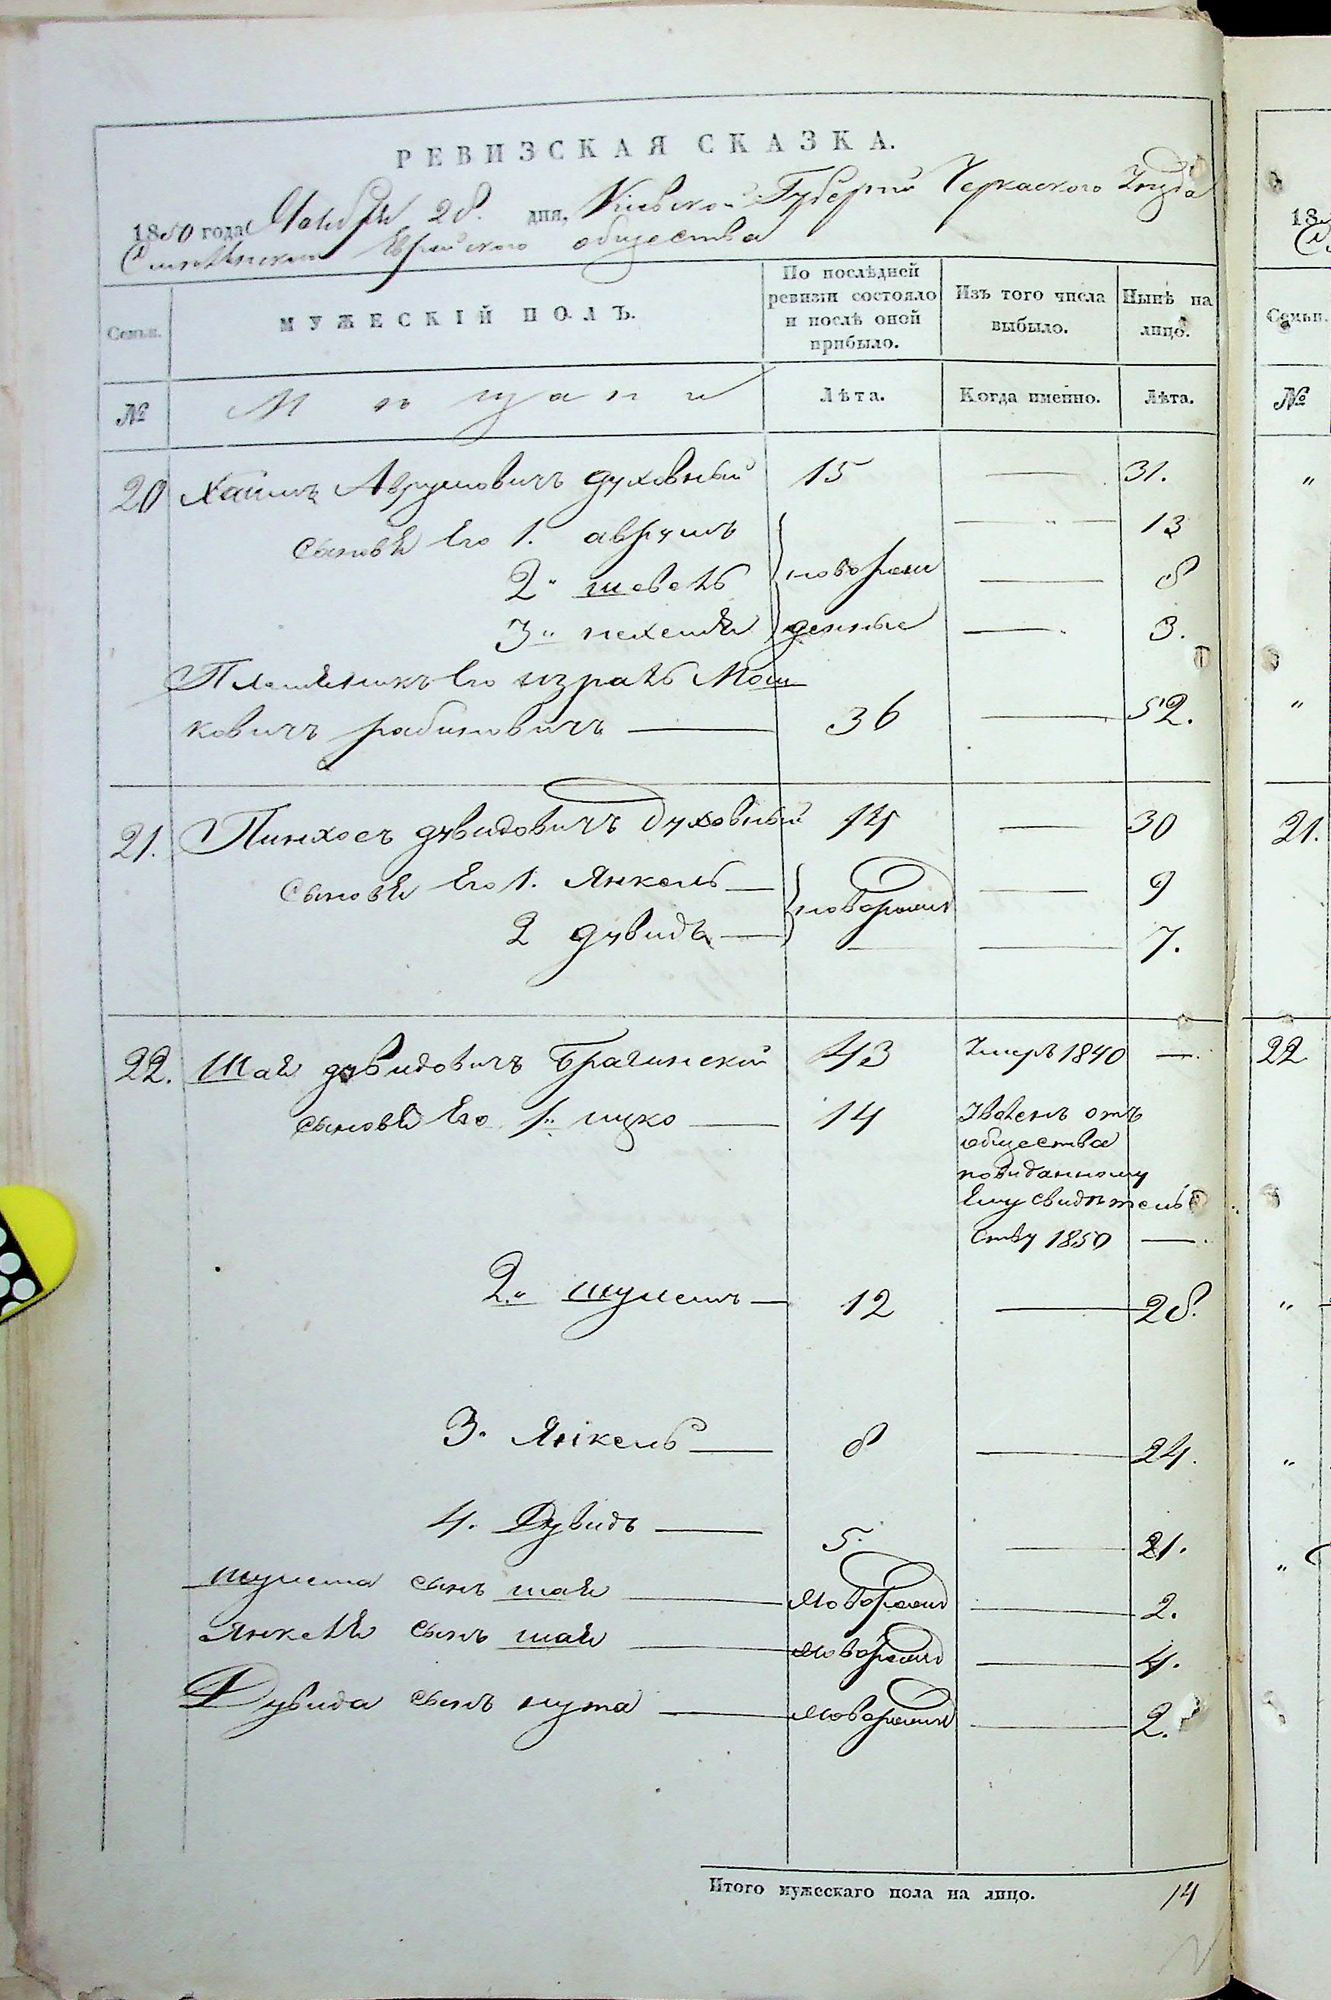 РЕВИЗСКАЯ СКАЗКА.
1850 года Ноября 28. дня, Кіевской Губерніи Черкаского Уезда
Еврейского общества
Семьи. МУЖЕСКІЙ ПОЛЪ. По послѣдней ревизіи состояло и послѣ оной прибыло. Изъ того числа выбыло. Нынѣ на лицо.
№ Мѣщани Лѣта. Когда именно. Лѣта.
20 Хаимъ Аврумовичъ духовный 15 — 31.
сыновя Его 1. аврумъ — 13
2" шевель новорож — 8
3" нехемя денные — 3.
Племяникъ Его израель Мош
ковичъ рабиновичъ — 36 — 52.
21. Пинхосъ дувидовичъ Духовный 14 — 30
сыновя Его 1. Янкель — новорожд — 9
2 дувидъ — — — 7.
22. Шая дувидовичъ Брагинскій 43 Умеръ 1840 —
сыновя Его 1" ицко — 14 Уволенъ отъ
общества
повиданному
Ему свидѣтель
ству 1850 —
2." шулемъ — 12 — 28.
3. Янкель — 8 — 24.
4. Дувидъ — 5. — 21.
шулема сынъ шая — новорожд — 2.
Янкеля сынъ шая — новорожд — 4.
Дувида сынъ нута — новорожд — 2.
Итого мужескаго пола на лицо. 14
18
Семьи.
№
"
"
21.
22
"
"
"